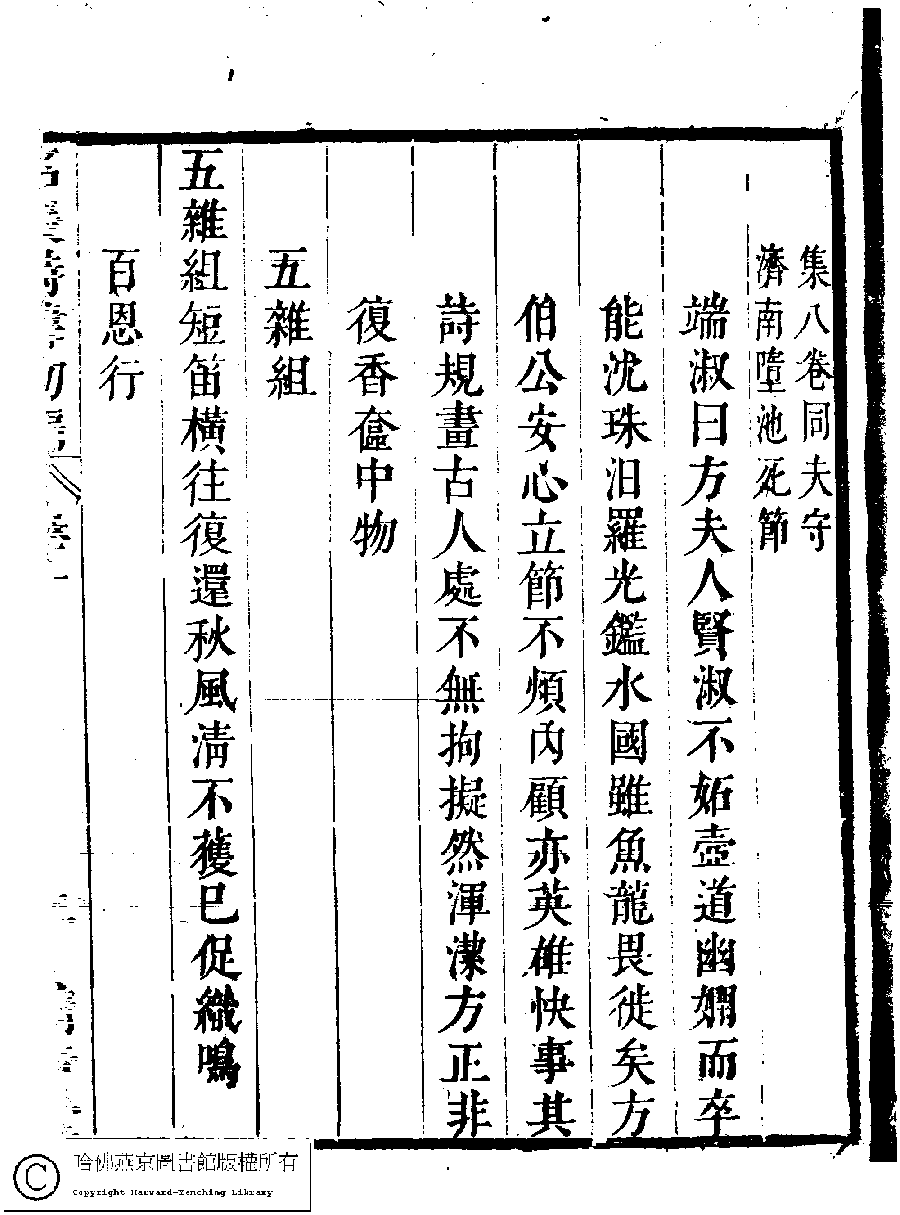 集八卷同夫守
濟南墮池死節
端淑曰方夫人賢淑不妬壼道幽嫻而卒
能沈珠汨羅光鑑水國雖魚龍畏徙矣方
伯公安心立節不煩內顧亦英雄快事其
詩規畫古人處不無拘擬然渾潔方正非
復香奩中物
五雜組
五雜組短笛橫往復還秋風清不獲已促織鳴
百恩行
名媛詩緯初編
哈佛燕京圖書館版權所有
Copyright Harvard-Yenching Library